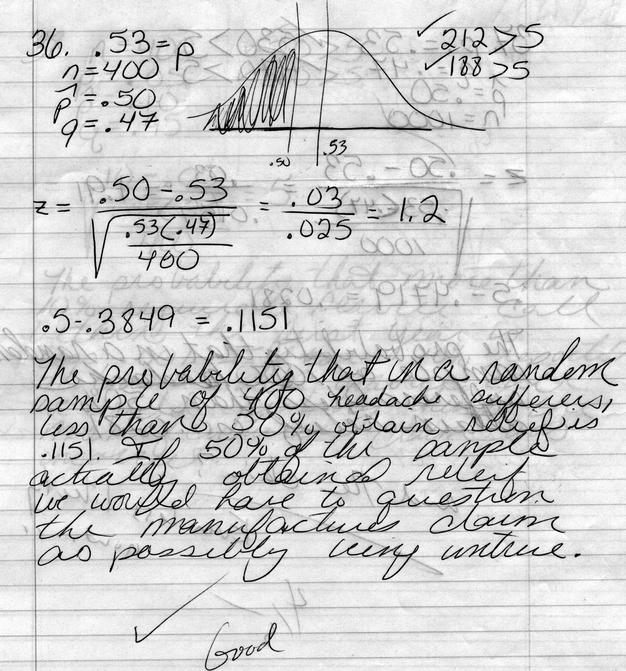 36. .53 = p
n = 400
p̂ = .50
q = .47
✓ 212 > 5
✓ 188 > 5
.50 .53
z = (.50 - .53) / √(.53(.47) / 400) = .03 / .025 = 1.2
.5 - .3849 = .1151
The probability that in a random
sample of 400 headache sufferers,
less than 50% obtain relief is
.1151. If 50% of the sample
actually obtained relief
we would have to question
the manufactures claim
as possibly being untrue.
✓ Good